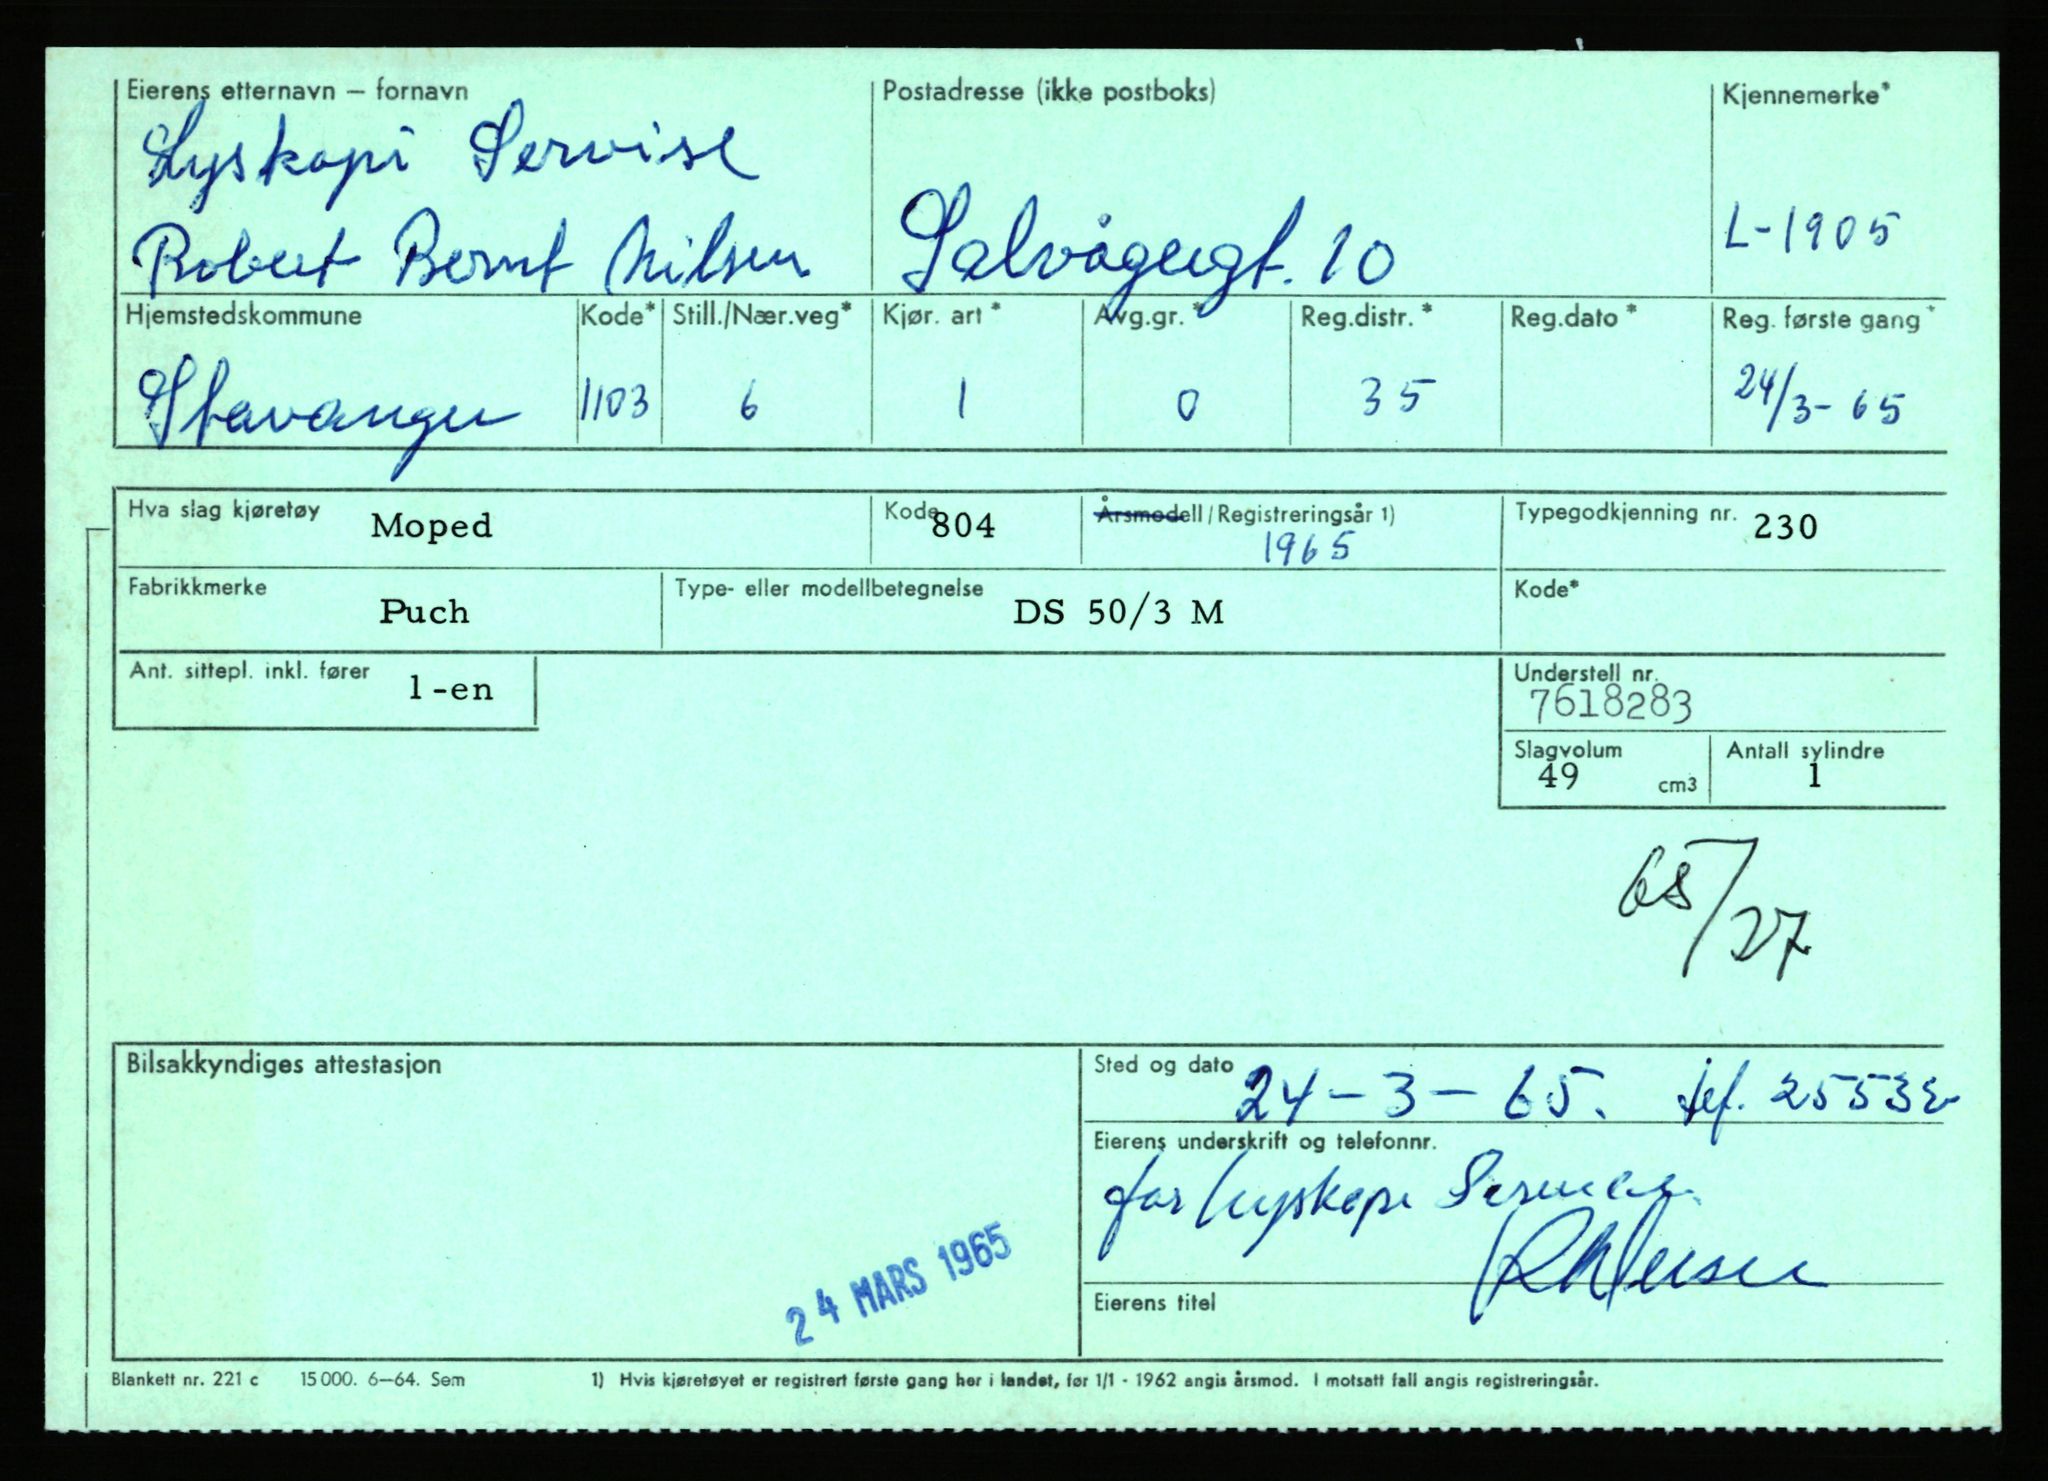 Eierens etternavn – fornavn Postadresse (ikke postboks) Kjennemerke*
Lyskopi Servise
Robert Bernt Nilsen Salvågergt. 10 L-1905
Hjemstedskommune Kode* Still./Nær.veg* Kjør. art* Avg.gr.* Reg.distr.* Reg.dato* Reg. første gang*
Stavanger 1103 6 1 0 35 24/3-65
Hva slag kjøretøy Moped Kode 804 Årsmodell/Registreringsår 1) 1965 Typegodkjenning nr. 230
Fabrikkmerke Puch Type- eller modellbetegnelse DS 50/3 M Kode*
Ant. sittepl. inkl. fører 1-en Understell nr.
7618283
Slagvolum Antall sylindre
49 cm3 1
65/27
Bilsakkyndiges attestasjon Sted og dato 24-3-65. tef. 25532
Eierens underskrift og telefonnr.
for Lyskopi Service
RNilsen
24 MARS 1965
Eierens titel
Blankett nr. 221 c 15 000. 6–64. Sem 1) Hvis kjøretøyet er registrert første gang her i landet, før 1/1 - 1962 angis årsmod. I motsatt fall angis registreringsår.